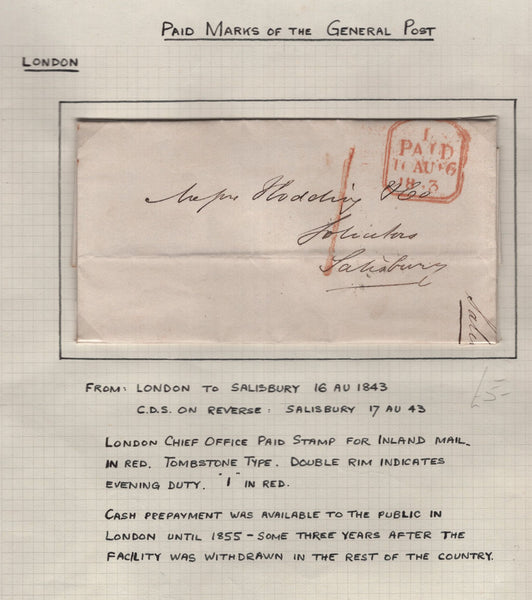 PAID MARKS OF THE GENERAL POST
LONDON
1
PAID
16 AU 16
18 3
Messrs Hodding & Co
Solicitors
Salisbury
FROM: LONDON TO SALISBURY 16 AU 1843
C.D.S. ON REVERSE: SALISBURY 17 AU 43
£5-
LONDON CHIEF OFFICE PAID STAMP FOR INLAND MAIL.
IN RED. TOMBSTONE TYPE. DOUBLE RIM INDICATES
EVENING DUTY. "1" IN RED.
CASH PREPAYMENT WAS AVAILABLE TO THE PUBLIC IN
LONDON UNTIL 1855 - SOME THREE YEARS AFTER THE
FACILITY WAS WITHDRAWN IN THE REST OF THE COUNTRY.